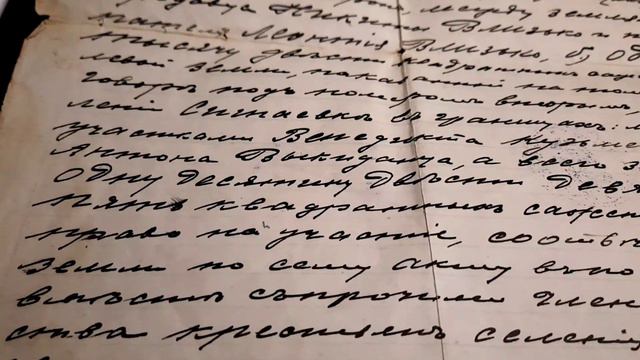 между земле
Никиты Близько и
Леонтія Близько, 5, Од
тысячу двѣсти квадратныхъ саж
левой земли, показанной на
говоръ подъ номеромъ вторымъ,
леніи Ситаевкѣ въ границахъ:
участками Венедикта Кузьме
Антона Выкиданца, а всего
Одну Десятину Двѣсти Девя
пять квадратныхъ сажен
право на участіе, соотвѣ
земли по сему акту въ по
вмѣстѣ съ прочими член
ства крестьянъ селенія